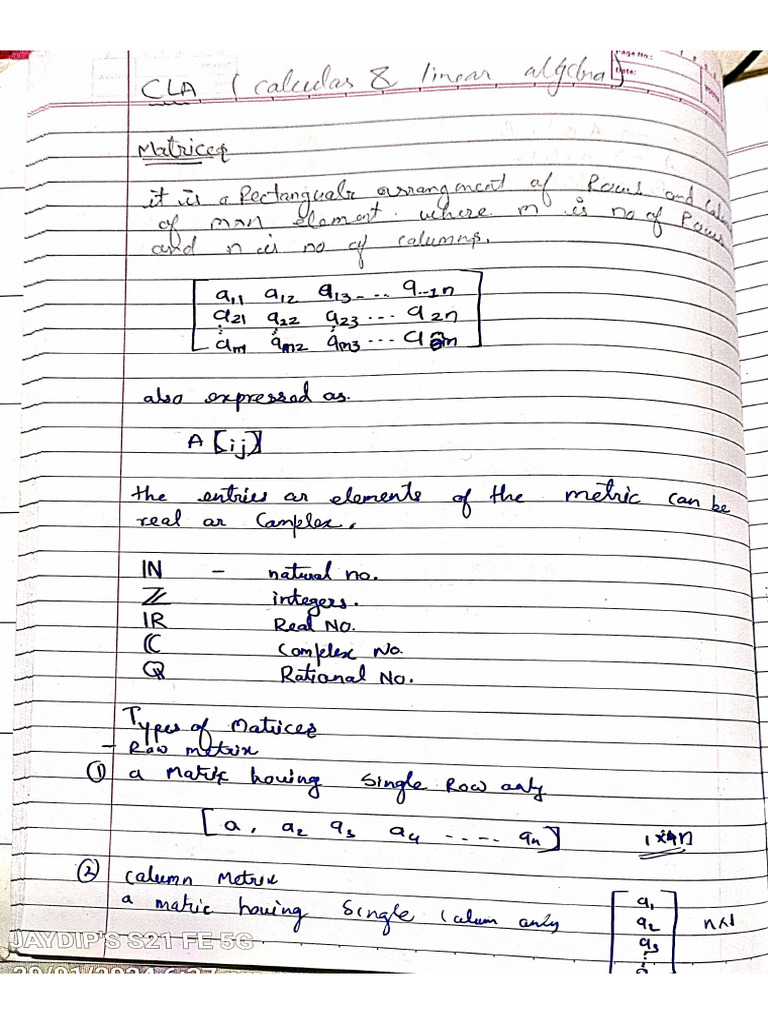 Page No.:
Date:
CLA ( calculas & linear algebra)
Matrices
it is a Rectangualr arrangement of Rows and
of mxn element. where m is no of Rows
and n is no of columns.
a11 a12 a13 --- a--1n
a21 a22 a23 --- a2n
am am2 am3 --- amn
also expressed as.
A [ij]
the entries or elements of the metric can be
real or Complex.
IN - natural no.
ℤ integers.
IR Real NO.
ℂ Complex No.
ℚ Rational No.
Types of Matrices
- Row metrix
① a Matrix having single Row only
[ a, a2 a3 a4 ---- an ] 1xn
② column Metrix
a matric having single Colum only
a1
a2 nx1
a3
JAYDIP'S S21 FE 5G